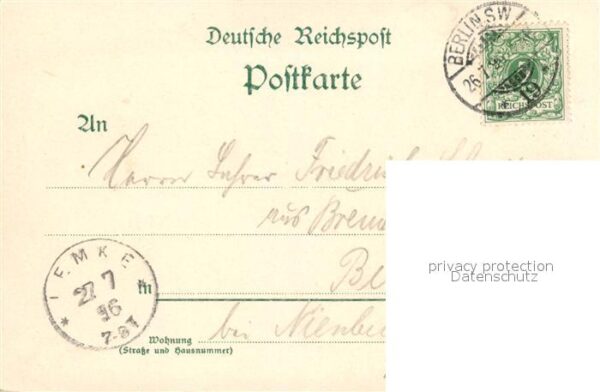 Deutsche Reichspost
Postkarte
BERLIN SW
26 7
19
REICHSPOST
An
Herrn Lehrer Friedrich
aus
privacy protection
Datenschutz
LEMKE
27 7
96
7-8V
in
bei Nienbu
Wohnung
(Straße und Hausnummer)